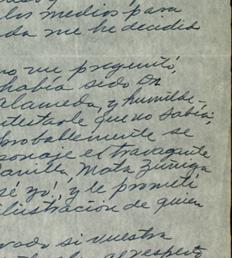 los medios para
da me he decidido
no me preguntó,
había sido Dn
Alameda, y humilde-
ntestarle que no sabía,
probablemente se
sonaje extravagante
anilla, Mata Zúñiga
sé yo!, y le prometí
ilustración de quien
vado si vuestra
al respecto